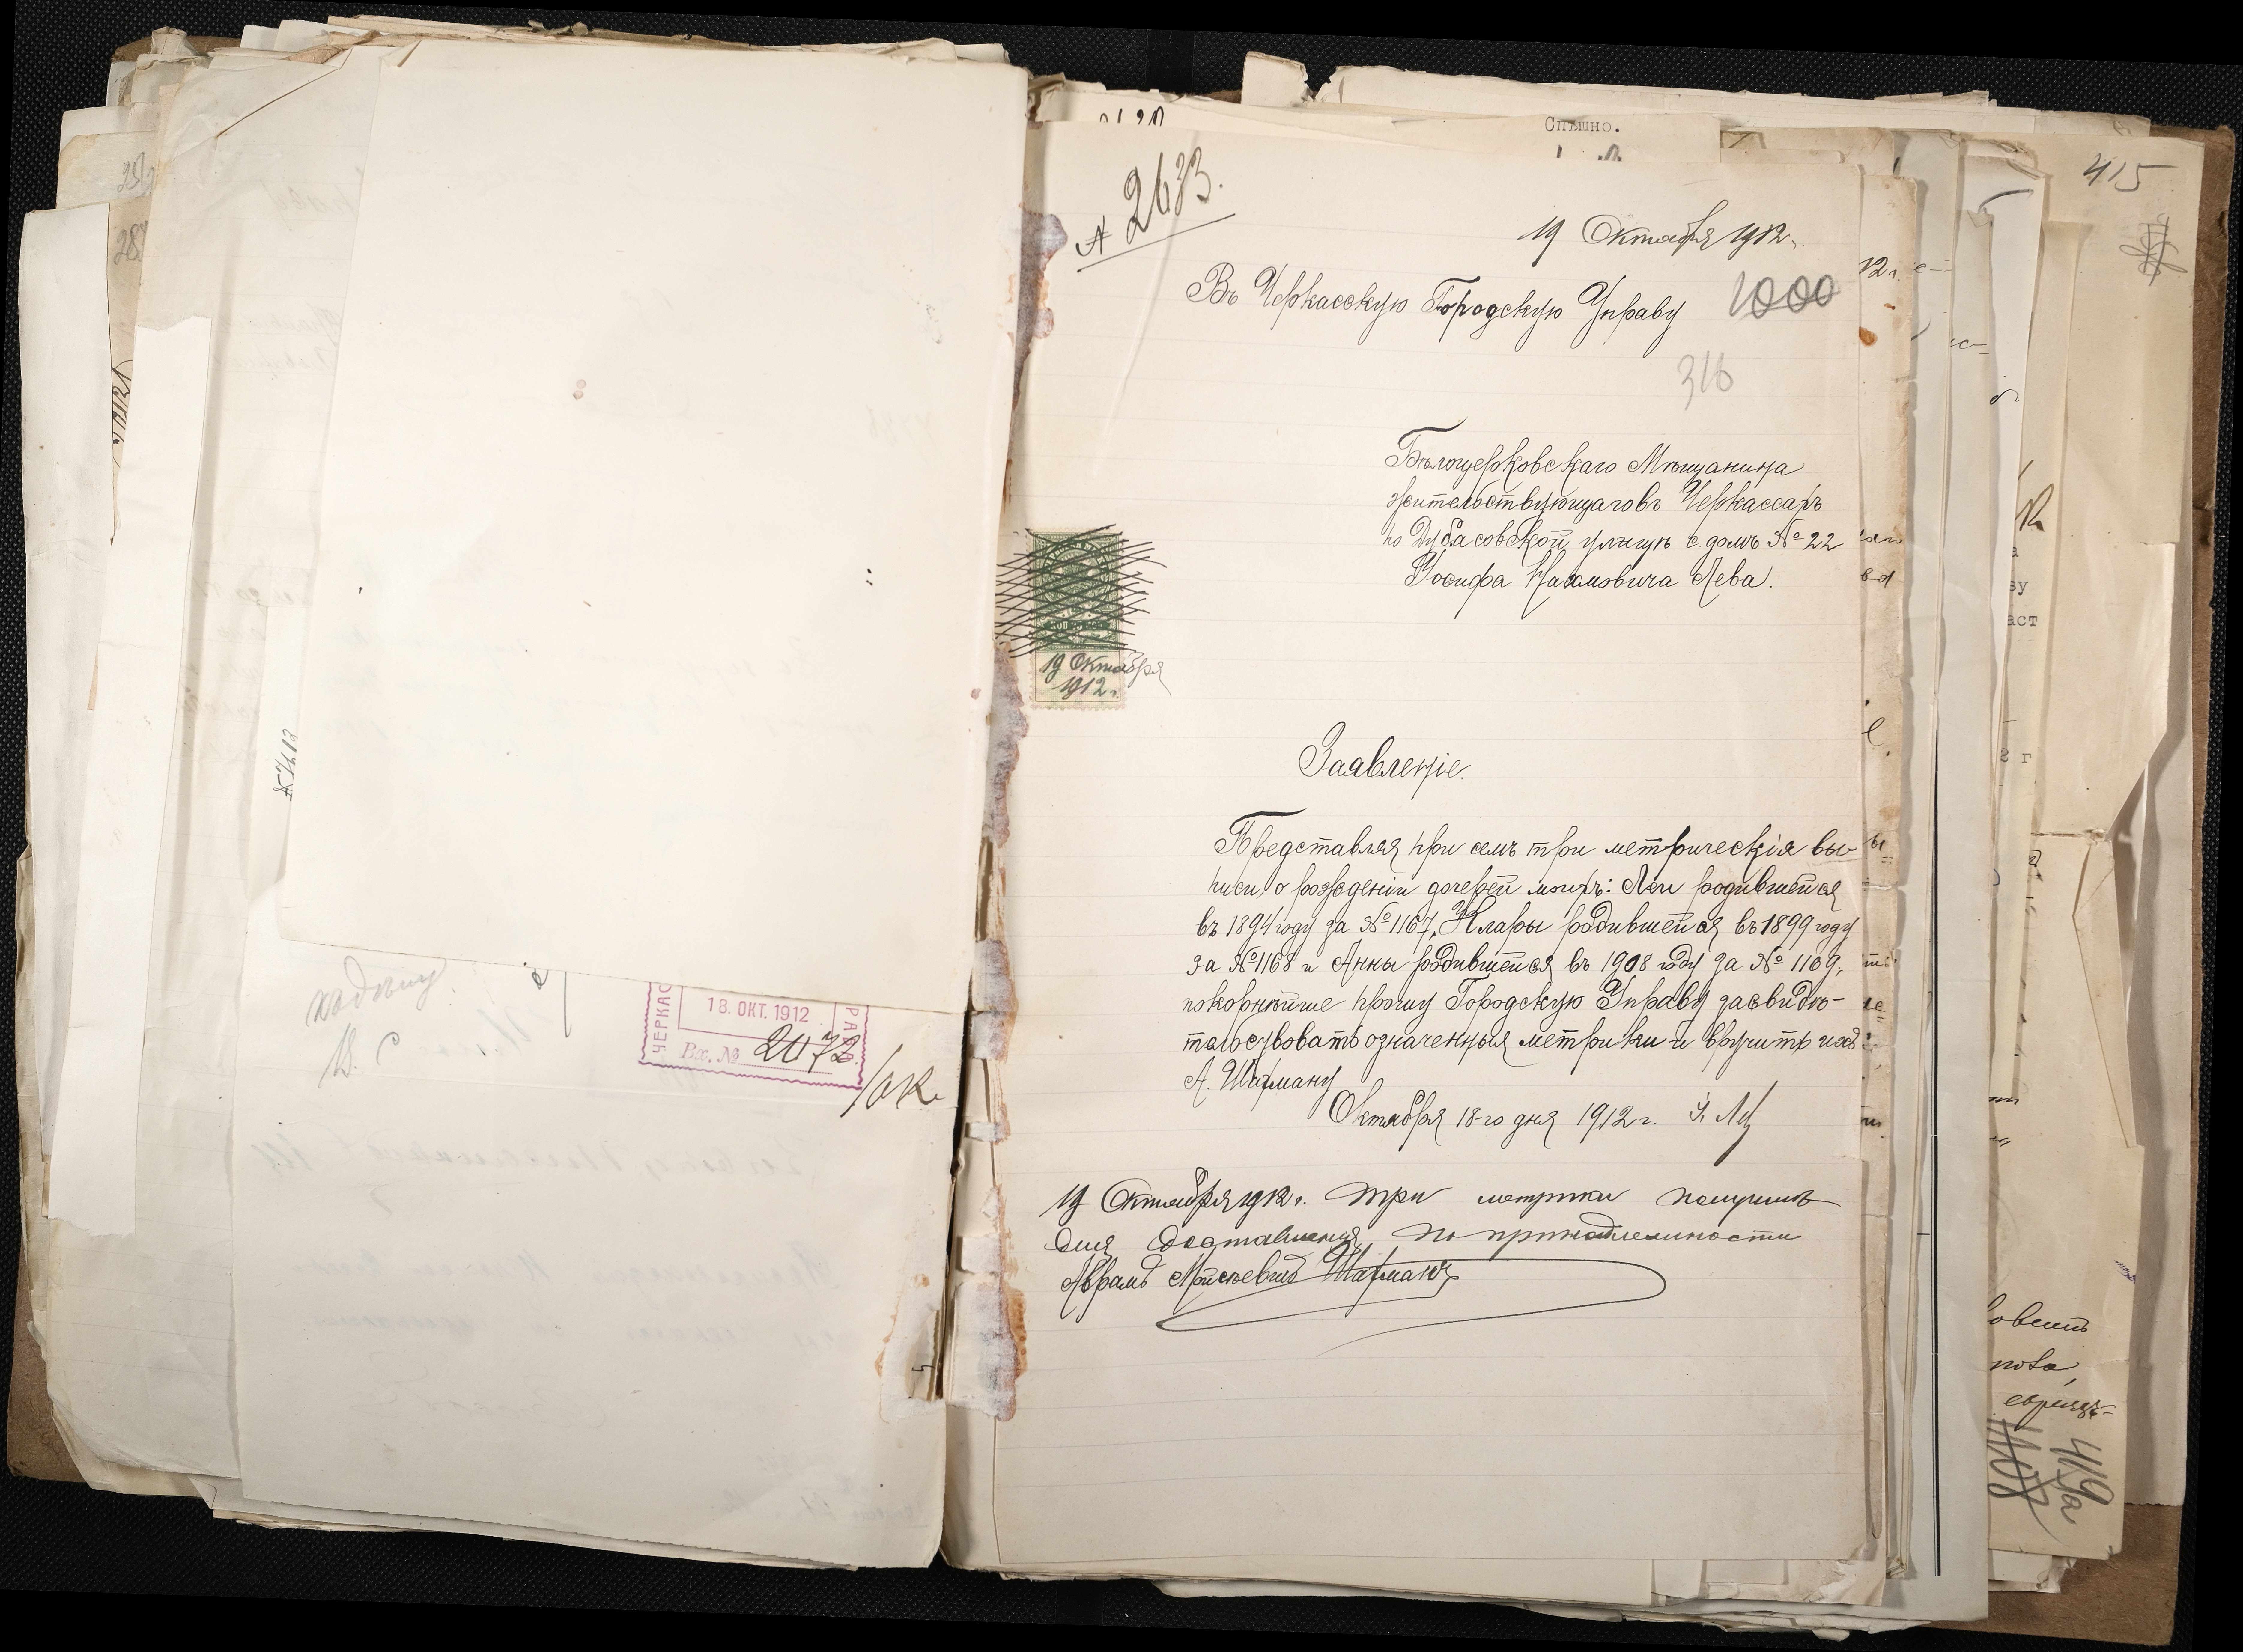 415
Спѣшно.
№ 2633.
19 Октября 1912 г.
Въ Черкасскую Городскую Управу
1000
316
Бѣлоцерковскаго Мѣщанина
жительствующаго въ Черкассахъ
по Дубасовской улицѣ с. домъ № 22
Іосифа Нахмовича Лева.
19 Октября
1912 г.
Заявленіе.
Представляя при семъ три метрическія вы-
писи о рожденіи дочерей моихъ: Леи родившейся
въ 1894 году за № 1167, Клары родившейся въ 1899 году
за № 1168 и Анны родившейся въ 1908 году за № 1169,
покорнѣйше прошу Городскую Управу засвидѣ-
тельствовать означенныя метрики и вручить ихъ
А. Шафману
Октября 18-го дня 1912 г. І. Лев
19 Октября 1912 г. три метрики получилъ
для доставленія по принадлежности
Аврамъ Мойсеевичъ Шафманъ
ЧЕРКАС
18. ОКТ. 1912
Вх. №
2072
419а